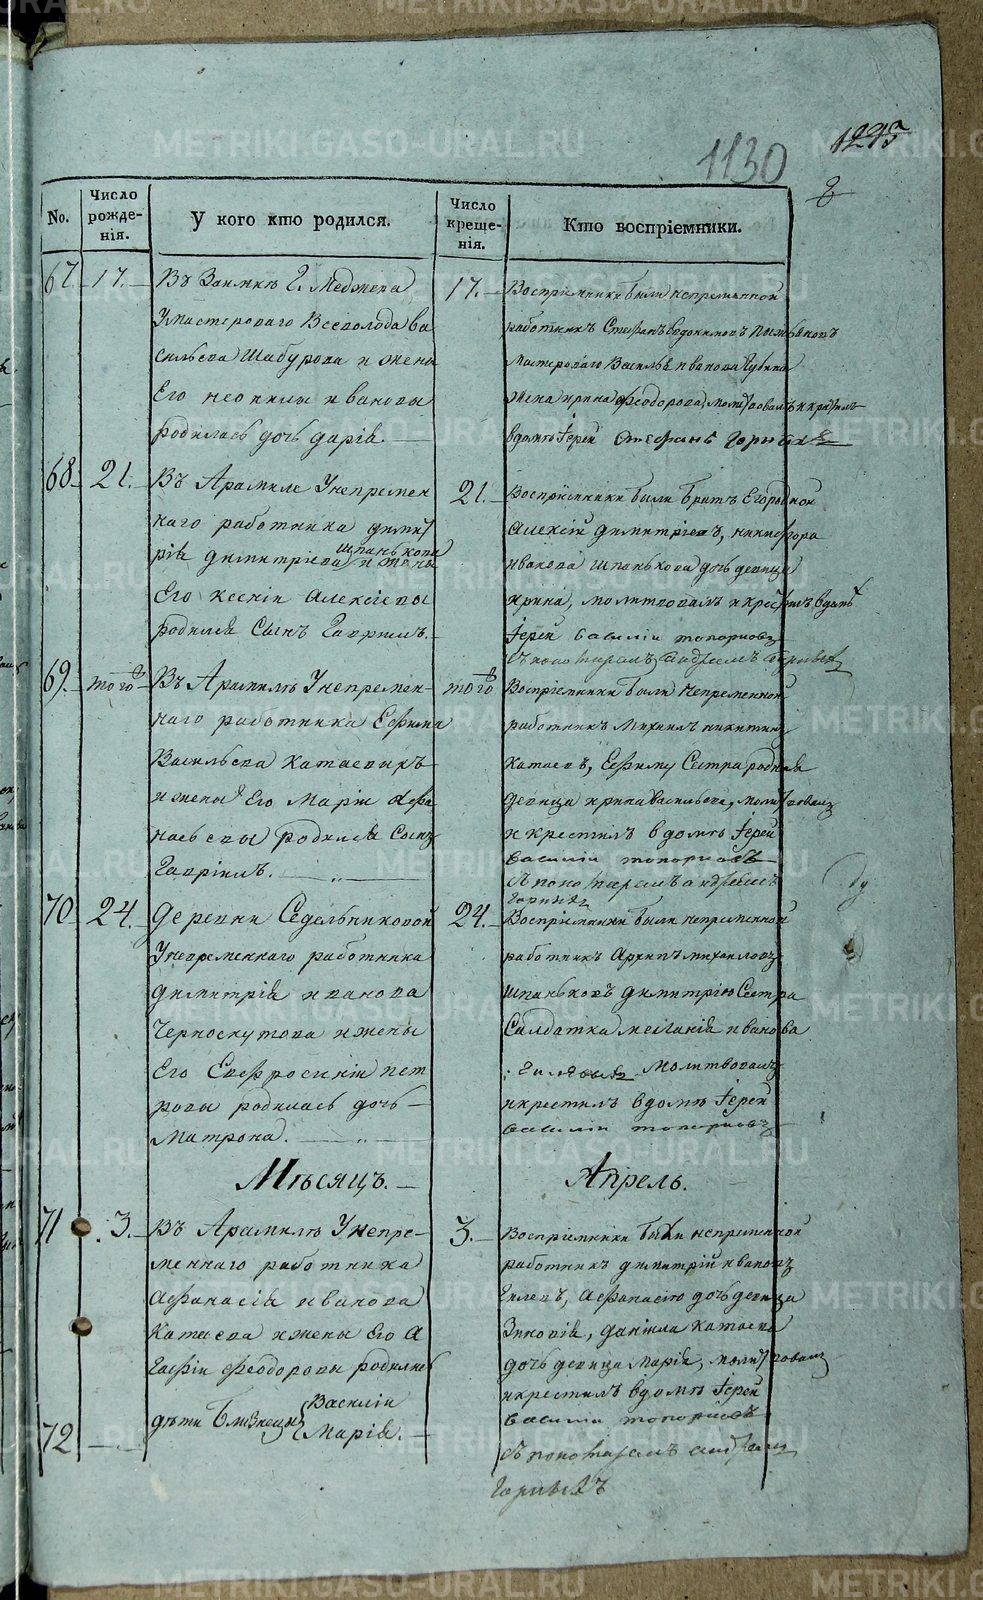 1130
1295
8
No.
Число рожде- нія.
У кого кто родился.
Число креще- нія.
Кто воспріемники.
67. 17. Въ Заимкѣ Г. Меджера
Умастероваго Всеволода Ва
сильева Шабурова и жены
Его неонилы ивановы
родилась дочь дарія.
17. Воспріемники были непременной
работникъ Стефанъ Евдокимовъ
Мастероваго Василья иванова Губина
жена ирина Феодорова, молитвовалъ и крестилъ
вдомѣ Іерей Стефанъ
68. 21. Въ Арамиле Унепремен
наго работника дими
рія димитріева Шпанькова и жены
Его ксеніи Алексіевы
родился Сынъ Гавріилъ.
21. Воспріемники были братъ Его родной
Алексій димитріевъ, никифора
иванова шпанькова дочь девица
ирина, молитвовалъ и крестилъ вдомѣ
Іерей Василій топорковъ
съ пономаремъ Андреемъ
69. того Въ Арамилѣ Унепремен-
наго работника Ефима
Васильева Катаевыхъ
и жены Его Маріи Афа
насьевы родился Сынъ
Гавріилъ.
того Воспріемники были непременной
работникъ Михаилъ никитинъ
Катаевъ, Ефиму Сестра родная
девица ирина Васильева, молитвовалъ
и крестилъ вдомѣ Іерей
Василій топорковъ
съ пономаремъ андреемъ
70 24. Деревни Седельниковой
Унепременнаго работника
димитрія иванова
Черноскутова и жены
Его Евфросиніи пет
ровы родилась дочь
Матрона.
24. Воспріемники были непременной
работникъ Архипъ михаиловъ
шпаньковъ димитрію Сестра
Салдатка меланія иванова
Молитвовалъ
и крестилъ вдомѣ Іерей
Василій топорковъ
Мѣсяцъ. Апрель.
71 3. Въ Арамилѣ Унепре-
меннаго работника
Афанасія иванова
Катаева и жены Его А
гафіи Феодоровы родились
72 дѣти близнецы Василій
Марія.
3. Воспріемники были непременной
работникъ димитрій ивановъ
Гилевъ, Афанасію дочь девица
Зиновія, даніила Катаева
дочь девица Марія, молитвовалъ
и крестилъ вдомѣ Іерей
Василій топорковъ
съ пономаремъ андреемъ
METRIKI.GASO-URAL.RU